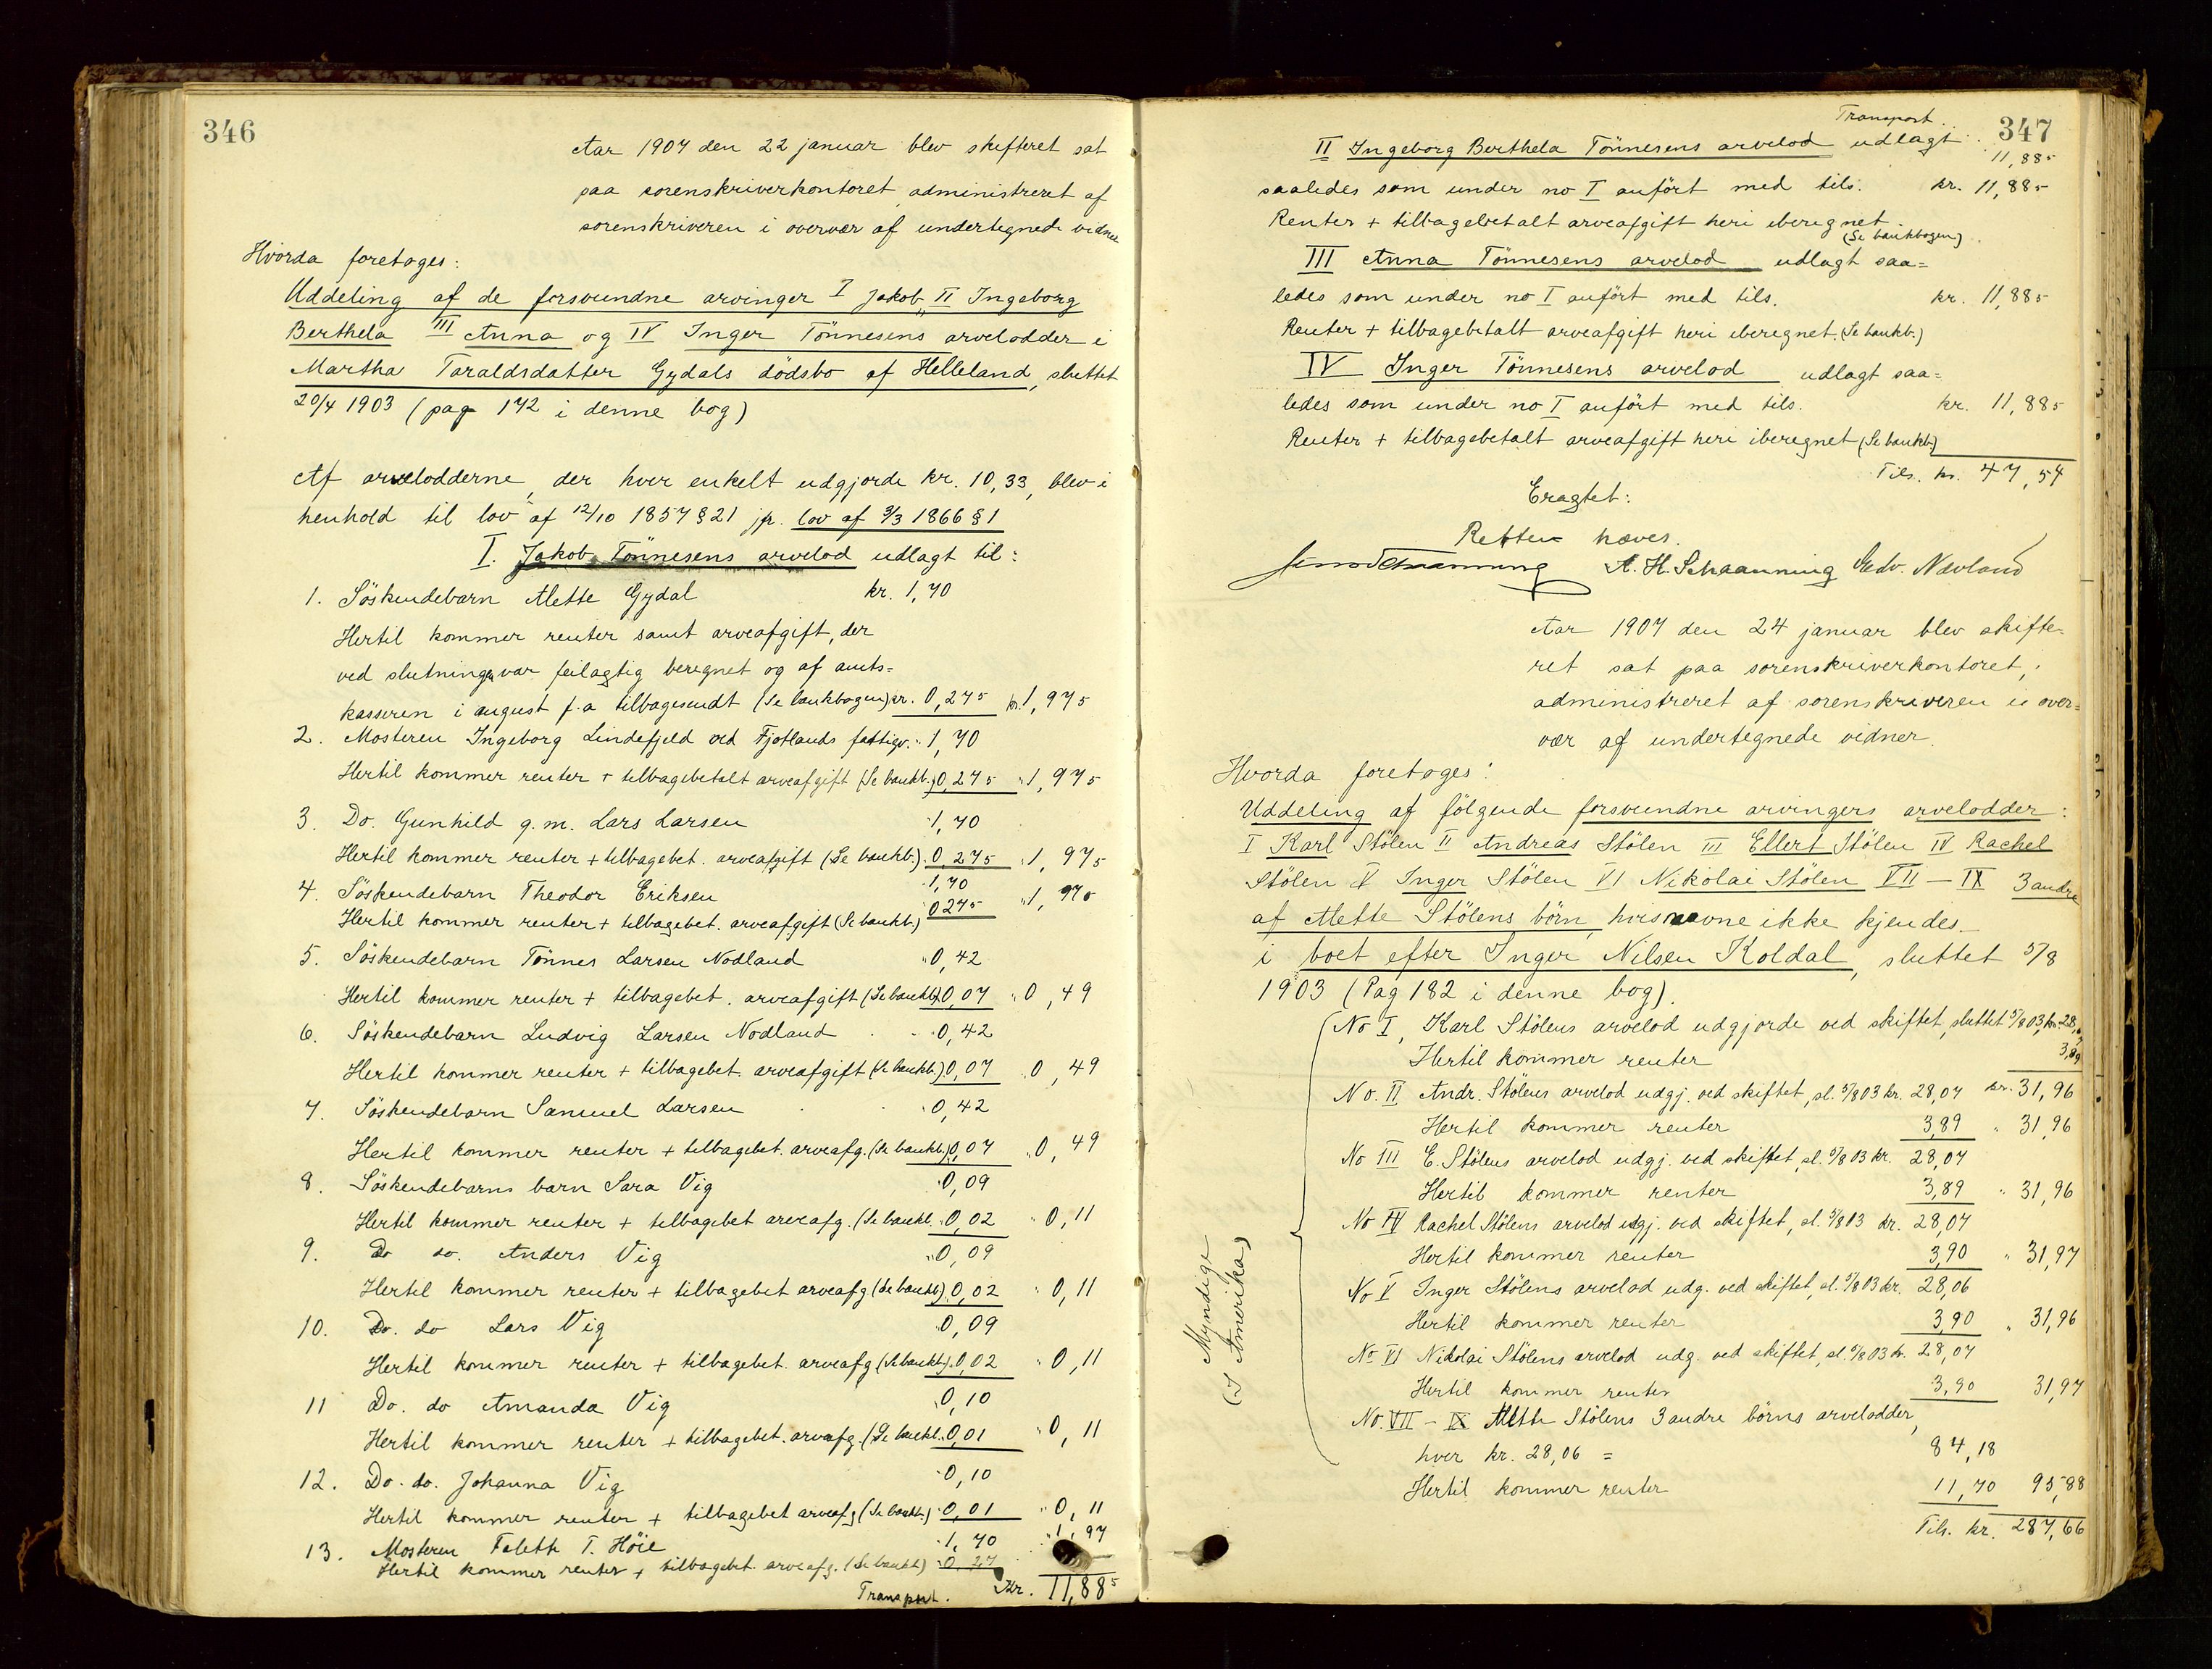 346
Aar 1907 den 22 januar blev skifteret sat
paa sorenskriverkontoret, administreret af
sorenskriveren i overvær af undertegnede vidner
Hvorda foretoges:
Uddeling af de forsvundne arvinger I Jakob, II Ingeborg
Berthela III Anna og IV Inger Tönnesens arvelodder i
Martha Taraldsdatter Gydals dödsbo af Helleland, sluttet
20/4 1903 (pag 172 i denne bog)
Af arvelodderne, der hver enkelt udgjorde kr. 10,33, blev i
henhold til lov af 12/10 1857 § 21 jfr. lov af 3/3 1866 § 1
I. Jakob Tönnesens arvelod udlagt til:
1. Söskendebarn Mette Gydal kr. 1,70
Hertil kommer renter samt arveafgift, der
ved slutningen var feilagtig beregnet og af amts=
kasseren i august f.a tilbagesendt (Se bankbogen) kr. 0,275 kr. 1,975
2. Mosteren Ingeborg Lindefjeld ved Fjotlands fattigv. " 1,70
Hertil kommer renter + tilbagebetalt arveafgift (Se bankb.) 0,275 " 1,975
3. Do. Gunhild g.m. Lars Larsen " 1,70
Hertil kommer renter + tilbagebet. arveafgift (Se bankb.) 0,275 " 1,975
4. Söskendebarn Theodor Eriksen " 1,70 " 1,975
Hertil kommer renter + tilbagebet. arveafgift (Se bankb.) 0275
5. Söskendebarn Tönnes Larsen Nodland " 0,42
Hertil kommer renter + tilbagebet. arveafgift (Se bankb.) 0,07 " 0,49
6. Söskendebarn Ludvig Larsen Nodland " 0,42
Hertil kommer renter + tilbagebet. arveafgift (Se bankb.) 0,07 " 0,49
7. Söskendebarn Samuel Larsen " 0,42
Hertil kommer renter + tilbagebet. arveafg. (Se bankb.) 0,07 " 0,49
8. Söskendebarns barn Sara Vig " 0,09
Hertil kommer renter + tilbagebet arveafg. (Se bankb. " 0,02 " 0,11
9. Do do. Anders Vig " 0,09
Hertil kommer renter + tilbagebet arveafg (Se bankb) 0,02 " 0,11
10. Do. do Lars Vig " 0,09
Hertil kommer renter + tilbagebet. arveafg (Se bankb.) 0,02 " 0,11
11 Do. do Amanda Vig " 0,10
Hertil kommer renter + tilbagebet. arveafg. (Se bankb. 0,01 " 0,11
12. Do. do. Johanna Vig " 0,10
Hertil kommer renter + tilbagebet arveafg (Se bankb.) " 0,01 " 0,11
13. Mosteren T. Höie " 1,70 " 1,97
Hertil kommer renter + tilbagebet. arveafg. (Se bankb.) " 0,27
Transport. Kr. 11,885
347
Transport
11,885
II Ingeborg Berthela Tönnesens arvelod udlagt
saaledes som under no I anfört med tils. kr. 11,885
Renter + tilbagebetalt arveafgift heri iberegnet
(Se bankbogen)
III Anna Tönnesens arvelod udlagt saa=
ledes som under no I anfört med tils. kr. 11,885
Renter + tilbagebetalt arveafgift heri iberegnet. (Se bankb.)
IV Inger Tönnesens arvelod udlagt saa=
ledes som under no I anfört med tils. kr. 11,885
Renter + tilbagebetalt arveafgift heri iberegnet (Se bankb.)
Tils. kr. 47,54
Eragtet:
Retten hæves.
A. H. Schaanning Edv. Nævland
Aar 1907 den 24 januar blev skifte=
ret sat paa sorenskriverkontoret,
administreret af sorenskriveren i over=
vær af undertegnede vidner.
Hvorda foretoges:
Uddeling af fölgende forsvundne arvingers arvelodder:
I Karl Stölen II Andreas Stölen III Ellert Stölen IV Rachel
Stölen V Inger Stölen VI Nikolai Stölen VII – IX 3 andre
af Mette Stölens börn, hvis navne ikke kjendes.
i boet efter Inger Nilsen Koldal, sluttet 5/8
1903 (Pag 182 i denne bog).
No I, Karl Stölens arvelod udgjorde ved skiftet, sluttet 5/8 03, kr. 28,07
Hertil kommer renter 3,89
No. II Andr. Stölens arvelod udgj. ved skiftet, sl. 5/8 03 kr. 28,07 kr. 31,96
Hertil kommer renter 3,89 " 31,96
No III E. Stölens arvelod udgj. ved skiftet, sl. 5/8 03 kr. 28,07
Hertil kommer renter 3,89 " 31,96
No IV Rachel Stölens arvelod udgj. ved skiftet, sl. 5/8 03 kr. 28,07
Hertil kommer renter 3,90 " 31,97
No V Inger Stölens arvelod udg. ved skiftet, sl. 5/8 03 kr. 28,06
Hertil kommer renter 3,90 " 31,96
No VI Nikolai Stölens arvelod udg. ved skiftet, sl. 5/8 03 kr. 28,07
Hertil kommer renter 3,90 31,97
No. VII – IX Mette Stölens 3 andre börns arvelodder,
hver kr. 28,06 = 84,18
Hertil kommer renter 11,70 95,88
Tils. kr. 287,66
Myndige
(I Amerika)